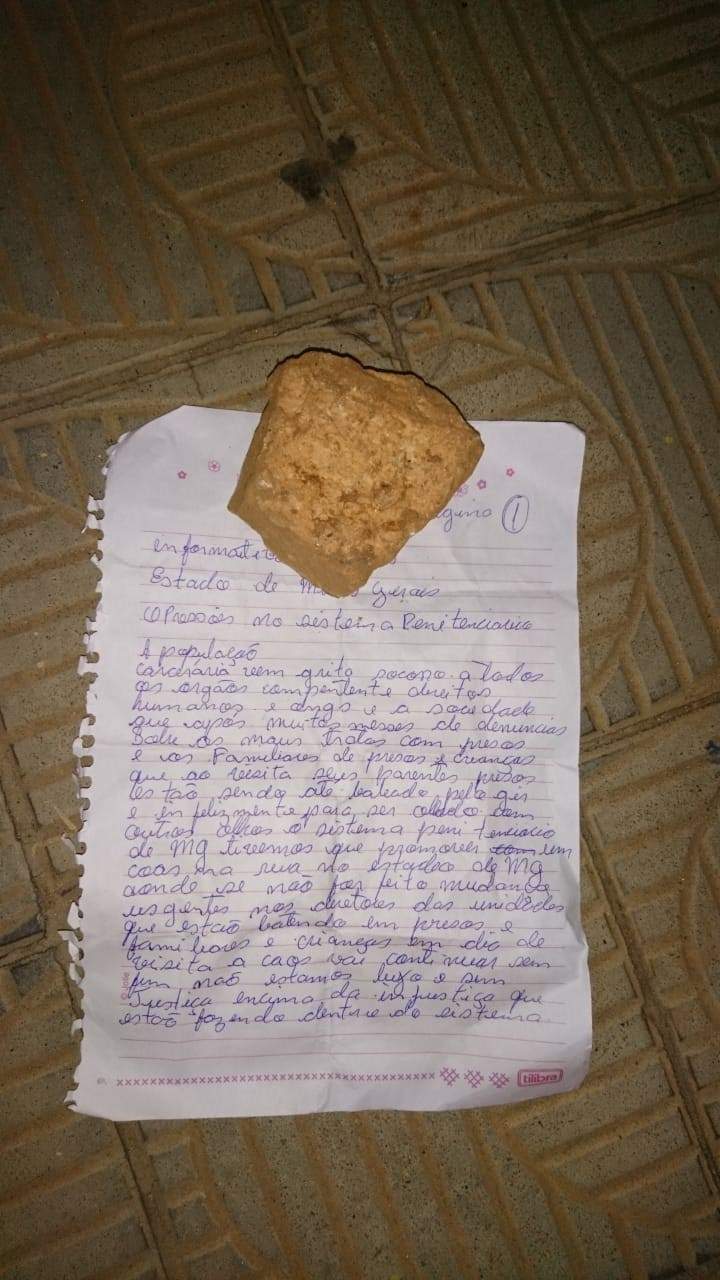 página 1
informati
Estado de Minas Gerais
Opressões no sistema Penitenciario
A população
carcerária vem grita socorro a todos
os orgãos compentente direitos
humanos e ongs e a sociedade
que após muitos messes de denuncias
Sobre os maus tratos com presos
e os Familiares de presos e crianças
que ao visita seus parentes presos
estão sendo até baleado pelo gir
e infelizmente para ser olhado com
outros olhos o sistema penitenciario
de MG tivemos que promover um
caos na rua no estado de MG
aonde se não for feito mudança
urgentes nos diretores das unidades
que estão batendo em presos e
familiares e crianças em dia de
visita a caos vai continuar sem
fim não estamos luxo e sim
Justiça encima da injustiça que
estão fazendo dentro do sistema
tilibra